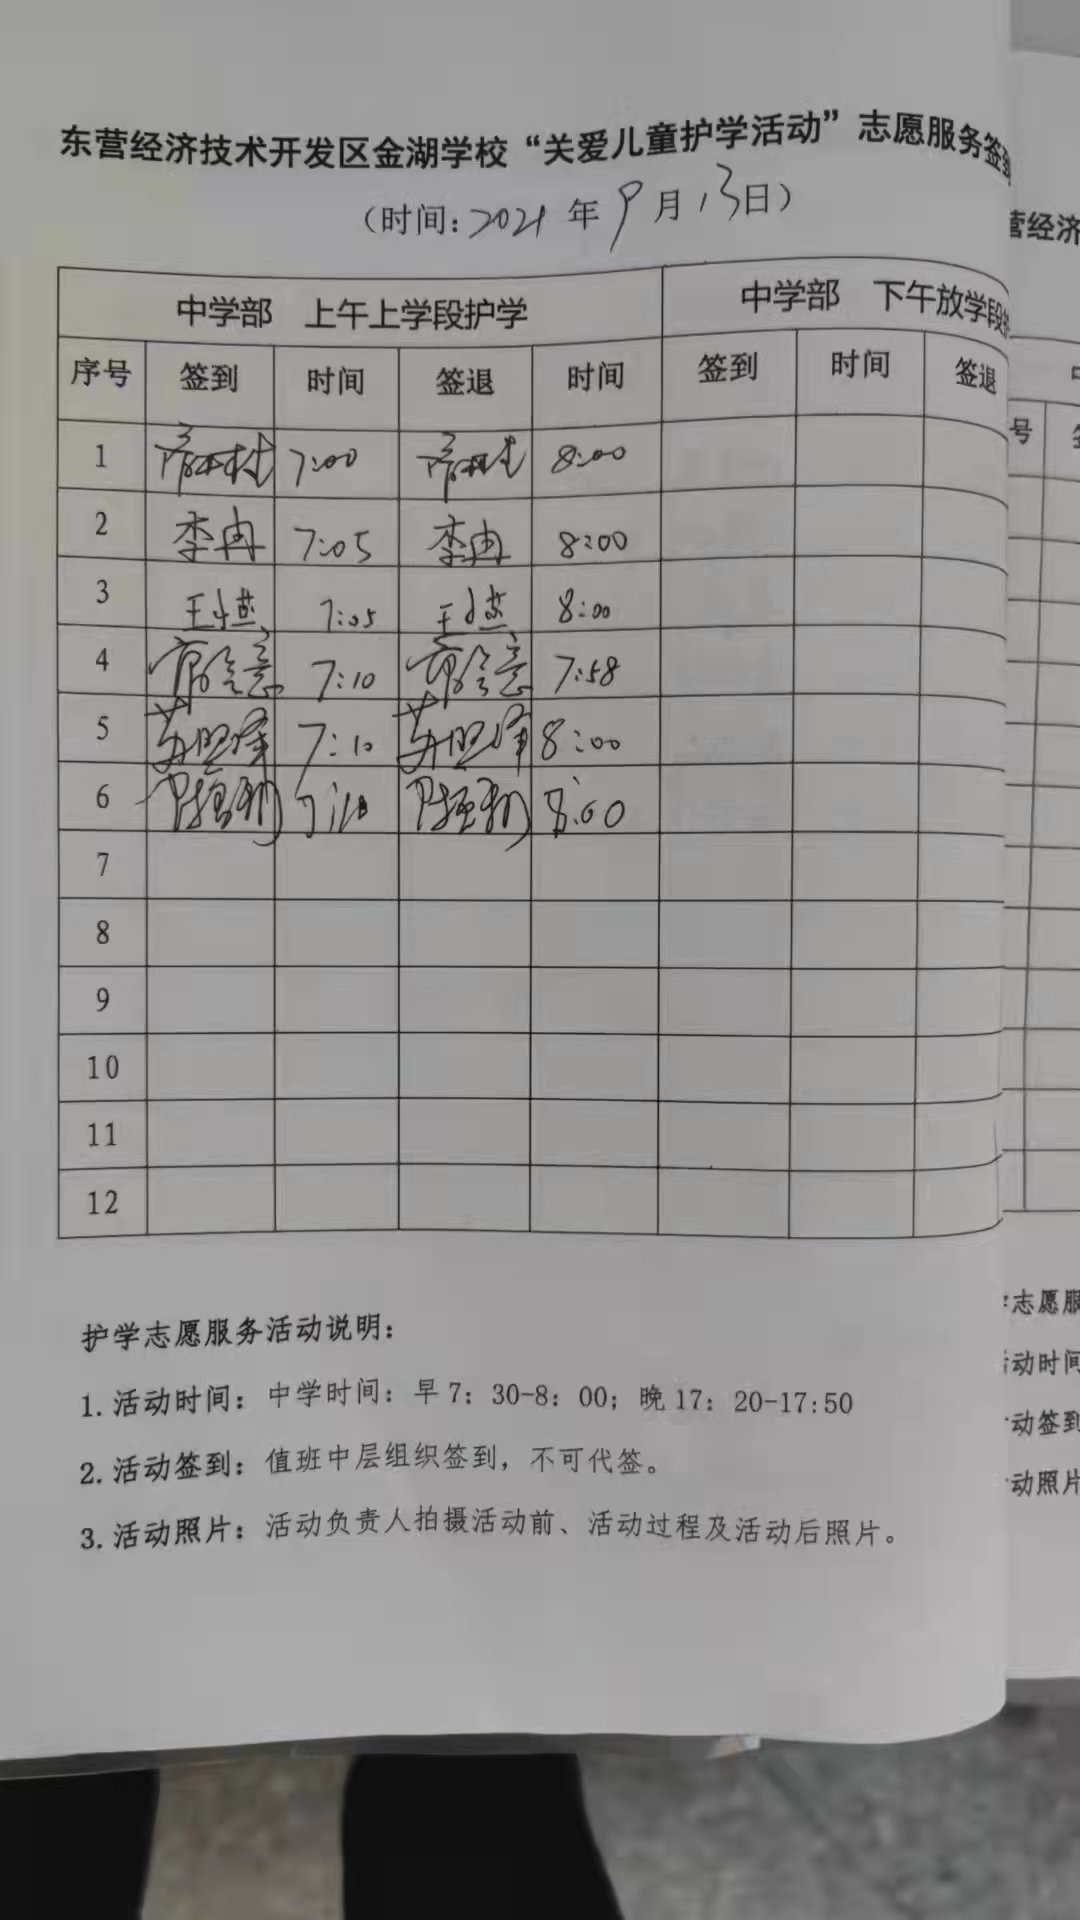 东营经济技术开发区金湖学校“关爱儿童护学活动”志愿服务签到
（时间：2021年9月13日）
中学部 上午上学段护学 中学部 下午放学段
序号 签到 时间 签退 时间 签到 时间 签退
1 7:00 8:00
2 李冉 7:05 李冉 8:00
3 王燕 7:05 王燕 8:00
4 7:10 7:58
5 7:10 8:00
6 7:10 8:00
7
8
9
10
11
12
护学志愿服务活动说明：
1.活动时间：中学时间：早7：30-8：00；晚17：20-17:50
2.活动签到：值班中层组织签到，不可代签。
3.活动照片：活动负责人拍摄活动前、活动过程及活动后照片。
营经济
号
志愿服
动时间
动签到
动照片